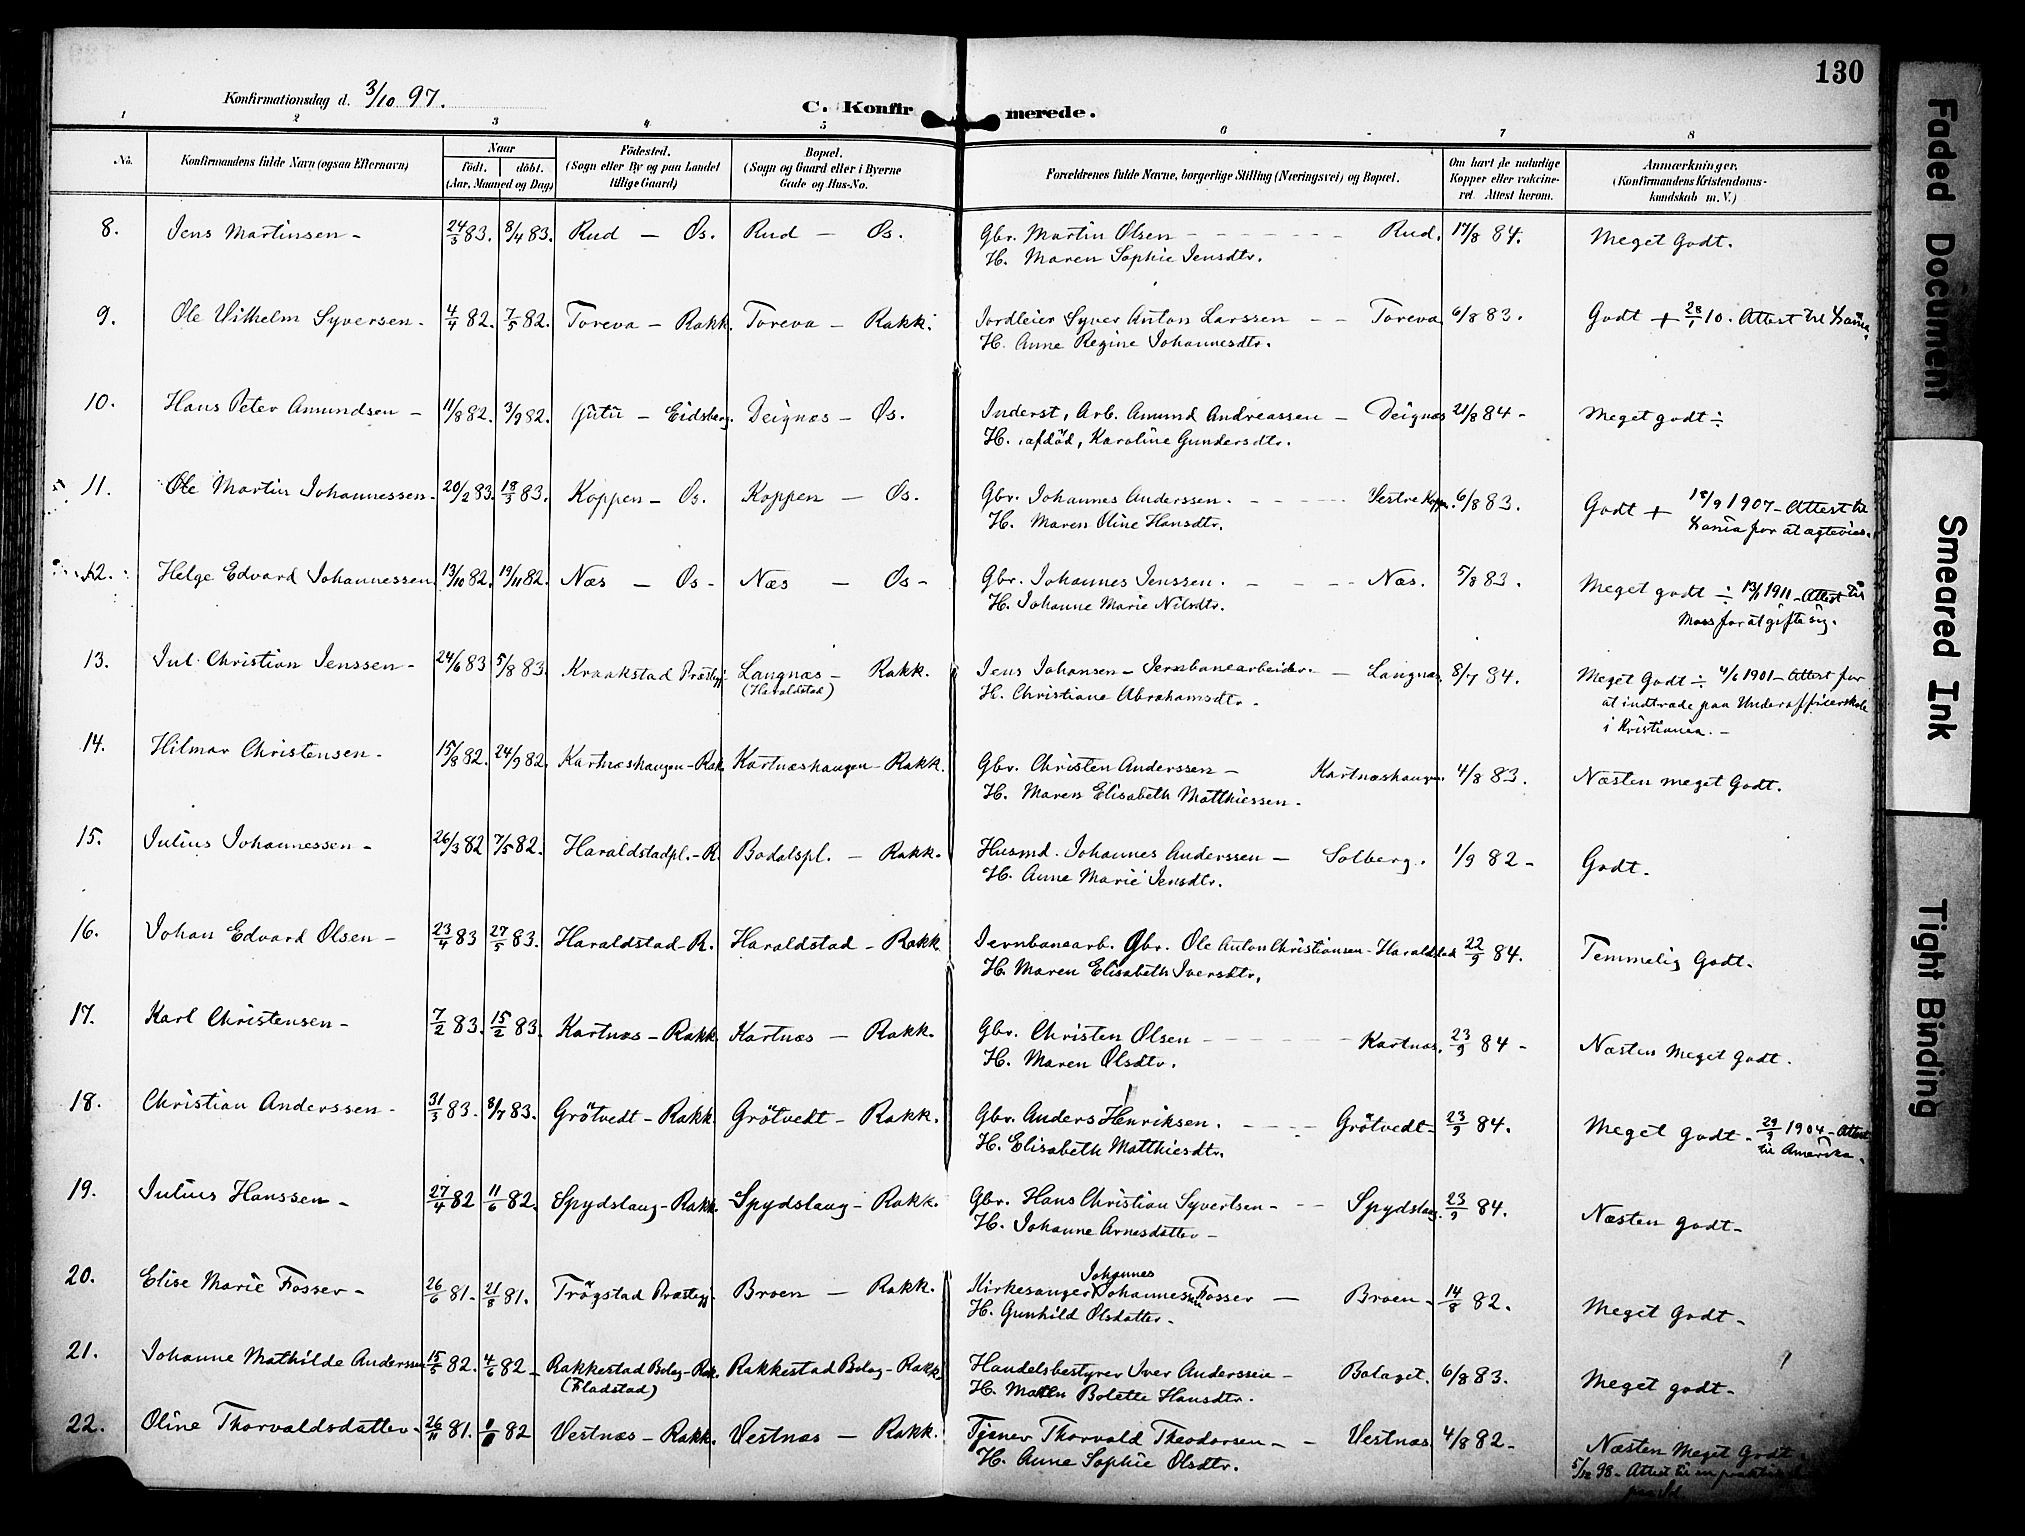 130
Konfirmationsdag d. 3/10 97.
C. Konfirmerede.
1 2 3 4 5 6 7 8
No. Konfirmandens fulde Navn (ogsaa Efternavn) Naar födt. döbt. (Aar, Maaned og Dag) Födested. (Sogn eller By og paa Landet tillige Gaard) Bopæl. (Sogn og Gaard eller i Byerne Gade og Hus-No. Forældrenes fulde Navne, borgerlige Stilling (Næringsvei) og Bopæl. Om havt de naturlige Kopper eller vakcineret. Attest herom. Anmærkninger. (Konfirmandens Kristendomskundskab m. V.)
8. Jens Martinsen - 24/3 83. 8/4 83. Rud - Os. Rud - Os. Gbr. Martin Olsen - Rud. 17/8 84. Meget Godt.
H. Maren Sophie Jensdtr.
9. Ole Vilhelm Syversen - 4/4 82. 7/5 82. Toreva - Rakk. Toreva - Rakk. Jordleier Syver Anton Larssen - - Toreva 6/8 83. Godt + 28/1 10. Attest til Xania.
H. Anne Regine Johannesdtr.
10. Hans Peter Amundsen - 11/8 82. 3/9 82. Gutu - Eidsberg. Deignæs - Os. Inderst, Arb. Amund Andreassen - Deignæs 21/8 84 - Meget godt ÷
H. afdöd, Karoline Gundersdtr.
11. Ole Martin Johannessen - 20/2 83. 18/3 83. Koppen - Os. Koppen - Os. Gbr. Johannes Anderssen. - Vestre Kopp. 6/8 83. Godt + 18/9 1907 - Attest til
H. Maren Oline Hansdtr. Xania for at ægtevies.
12. Helge Edvard Johannessen 13/10 82. 19/11 82. Næs - Os - Næs - Os - Gbr. Johannes Jenssen. - Næs. 5/8 83. Meget godt ÷ 13/1 1911 - Attest til
H. Johanne Marie Nilsdtr. Moss for at gifte sig.
13. Jul. Christian Jenssen - 24/6 83 5/8 83. Kraakstad Præstegj. Langnæs - Rakk. Jens Johansen - Jernbanearbeider. - Langnæs. 8/7 84. Meget Godt ÷ 4/6 1901 - Attest for
(Haraldstad) H. Christiane Abrahamsdtr. at indtræde paa Underofficerskole
i Kristiania. -
14. Hilmar Christensen - 15/8 82. 24/9 82. Kartnæshaugen - Rak. Kartnæshaugen - Rakk. Gbr. Christen Anderssen - Kartnæshaugen. 4/8 83. Næsten meget Godt.
H. Maren Elisabeth Matthiessen.
15. Julius Johannessen - 26/3 82 7/5 82. Haraldstadpl. - R. Bodalspl. - Rakk. Husmd. Johannes Anderssen - Solberg. 1/9 82 - Godt.
H. Anne Marie Jensdtr.
16. Johan Edvard Olsen - 23/4 83 27/5 83. Haraldstad - R. Haraldstad - Rakk. Jernbanearb. Gbr. Ole Anton Christiansen - Haraldstad 22/9 84. Temmelig Godt.
H. Maren Elisabeth Iversdtr.
17. Karl Christensen - 7/2 83. 15/2 83. Kartnæs - Rakk. Kartnæs - Rakk. Gbr. Christen Olsen - Kartnæs. 23/9 84 - Næsten Meget godt.
H. Maren Olsdtr.
18. Christian Anderssen - 31/3 83. 8/7 83. Grötvedt - Rakk. Grötvedt - Rakk. Gbr. Anders Henriksen. - Grötvedt - 23/9 84. Meget godt. 29/9 1904 - Attest
H. Elisabeth Matthiesdtr. til Amerika.
19. Julius Hanssen - 27/4 82 11/6 82. Spydslaug - Rakk. Spydslaug - Rakk. Gbr. Hans Christian Syvertsen - - Spydslaug. 23/9 84. Næsten godt -
H. Johanne Arnesdatter -
20. Elise Marie Fosser - 26/6 81. 21/8 81. Trögstad Præstegj. Broen - Rakk. Kirkesanger Johannes Johannesen Fosser - Broen - 14/8 82. Meget Godt -
H. Gunhild Olsdatter.
21. Johanne Mathilde Anderssen 15/5 82. 4/6 82 - Rakkestad Bolag - Rak. Rakkestad Bolag - Rakk. Handelsbestyrer Iver Anderssen - Bolaget. 6/8 83. Meget godt -
(Fladstad) H. Bolette Hansdtr.
22. Oline Thorvaldsdatter - 26/11 81. 82 Vestnæs - Rakk. Vestnæs - Rakk. Tjener Thorvald Theodorsen - - Vestnæs 4/8 82 - Næsten Meget Godt -
H. Anne Sophie Olsdtr. 5/12 98 - Attest til en
Faded Document
Smeared Ink
Tight Binding